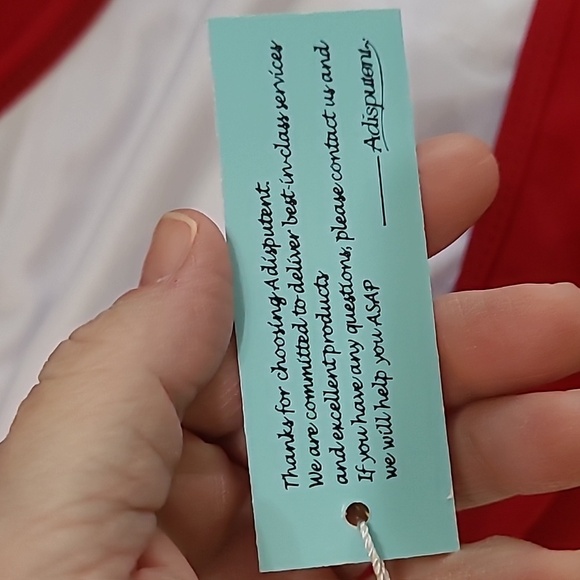 Thanks for choosing Adisputent.
We are committed to deliver best-in-class services
and excellent products
If you have any questions, please contact us and
we will help you ASAP
—— Adisputent.